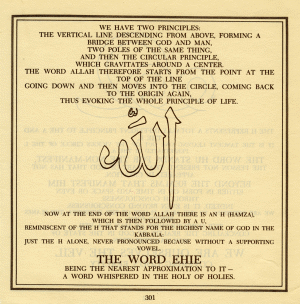 WE HAVE TWO PRINCIPLES:
THE VERTICAL LINE DESCENDING FROM ABOVE, FORMING A
BRIDGE BETWEEN GOD AND MAN,
TWO POLES OF THE SAME THING,
AND THEN THE CIRCULAR PRINCIPLE,
WHICH GRAVITATES AROUND A CENTER.
THE WORD ALLAH THEREFORE STARTS FROM THE POINT AT THE
TOP OF THE LINE
GOING DOWN AND THEN MOVES INTO THE CIRCLE, COMING BACK
TO THE ORIGIN AGAIN,
THUS EVOKING THE WHOLE PRINCIPLE OF LIFE.
الله
NOW AT THE END OF THE WORD ALLAH THERE IS AN H (HAMZA),
WHICH IS THEN FOLLOWED BY A U,
REMINISCENT OF THE H THAT STANDS FOR THE HIGHEST NAME OF GOD IN THE
KABBALA:
JUST THE H ALONE, NEVER PRONOUNCED BECAUSE WITHOUT A SUPPORTING
VOWEL.
THE WORD EHIE
BEING THE NEAREST APPROXIMATION TO IT—
A WORD WHISPERED IN THE HOLY OF HOLIES.
301